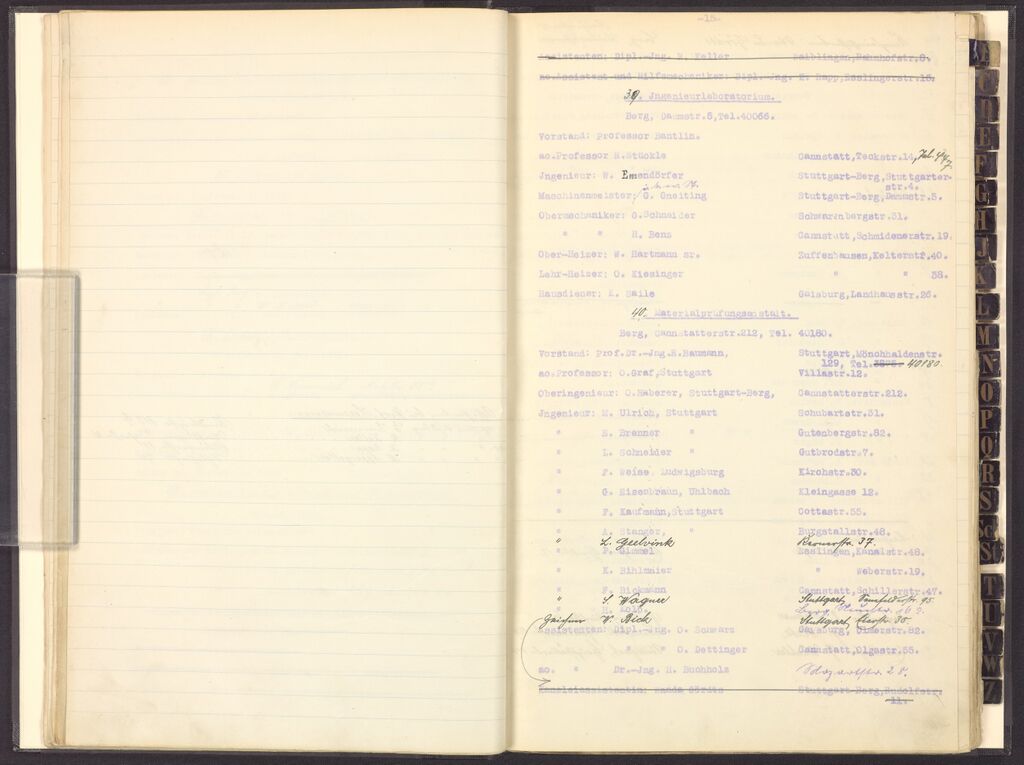 -15-
Assistenten: Dipl.-Jng. R. Keller Waiblingen, Bahnhofstr. 8.
ao. Assistent und Hilfsmechaniker: Dipl.-Jng. K. Rapp, Esslingerstr. 15.
39. Jngenieurlaboratorium.
Berg, Dammstr. 6, Tel. 40066.
Vorstand: Professor Bantlin.
ao. Professor R. Stückle Cannstatt, Teckstr. 14, Tel.
Jngenieur: W. Emendörfer Stuttgart-Berg, Stuttgarter-
str. 4.
Maschinenmeister: G. Gneiting Stuttgart-Berg, Dammstr. 5.
Obermechaniker: G. Schneider Schwarenbergstr. 31.
" " H. Benz Cannstatt, Schmidenerstr. 19.
Ober-Heizer: W. Hartmann sr. Zuffenhausen, Kelterstr. 40.
Lehr-Heizer: O. Kiesinger " " 38.
Hausdiener: K. Baile Gaisburg, Landhausstr. 26.
40. Materialprüfungsanstalt.
Berg, Cannstatterstr. 212, Tel. 40180.
Vorstand: Prof. Dr.-Jng. R. Baumann, Stuttgart, Mönchhaldenstr.
129, Tel. 40180
ao. Professor: O. Graf, Stuttgart Villastr. 12.
Oberingenieur: O. Haberer, Stuttgart-Berg, Cannstatterstr. 212.
Jngenieur: M. Ulrich, Stuttgart Schubartstr. 31.
" E. Brenner " Gutenbergstr. 82.
" L. Schneider " Gutbrodstr. 7.
" F. Weise, Ludwigsburg Kirchstr. 30.
" G. Eisenbraun, Uhlbach Kleingasse 12.
" F. Kaufmann, Stuttgart Cottastr. 55.
" A. Stanger, " Burgstallstr. 48.
" L. Geelvink 37.
" F. Gimmel Esslingen, Kanalstr. 48.
" K. Bihlmaier " Weberstr. 19.
" F. Bickmann Cannstatt, Schillerstr. 47.
" S. Wagner Stuttgart, 95
" H. Kolb. Berg,
W. Bick Stuttgart, 35
Assistenten: Dipl.-Jng. O. Schwarz Gaisburg, Ulmerstr. 82.
" " O. Dettinger Cannstatt, Olgastr. 55.
ao. " Dr.-Jng. H. Buchholz Mozartstr. 28.
Kanzleiassistentin: Wanda Stuttgart-Berg, Rudolfstr.
11.
D
E
F
G
H
J
K
L
M
N
O
P
Q
R
S
Sch
St
T
U
V
W
Z